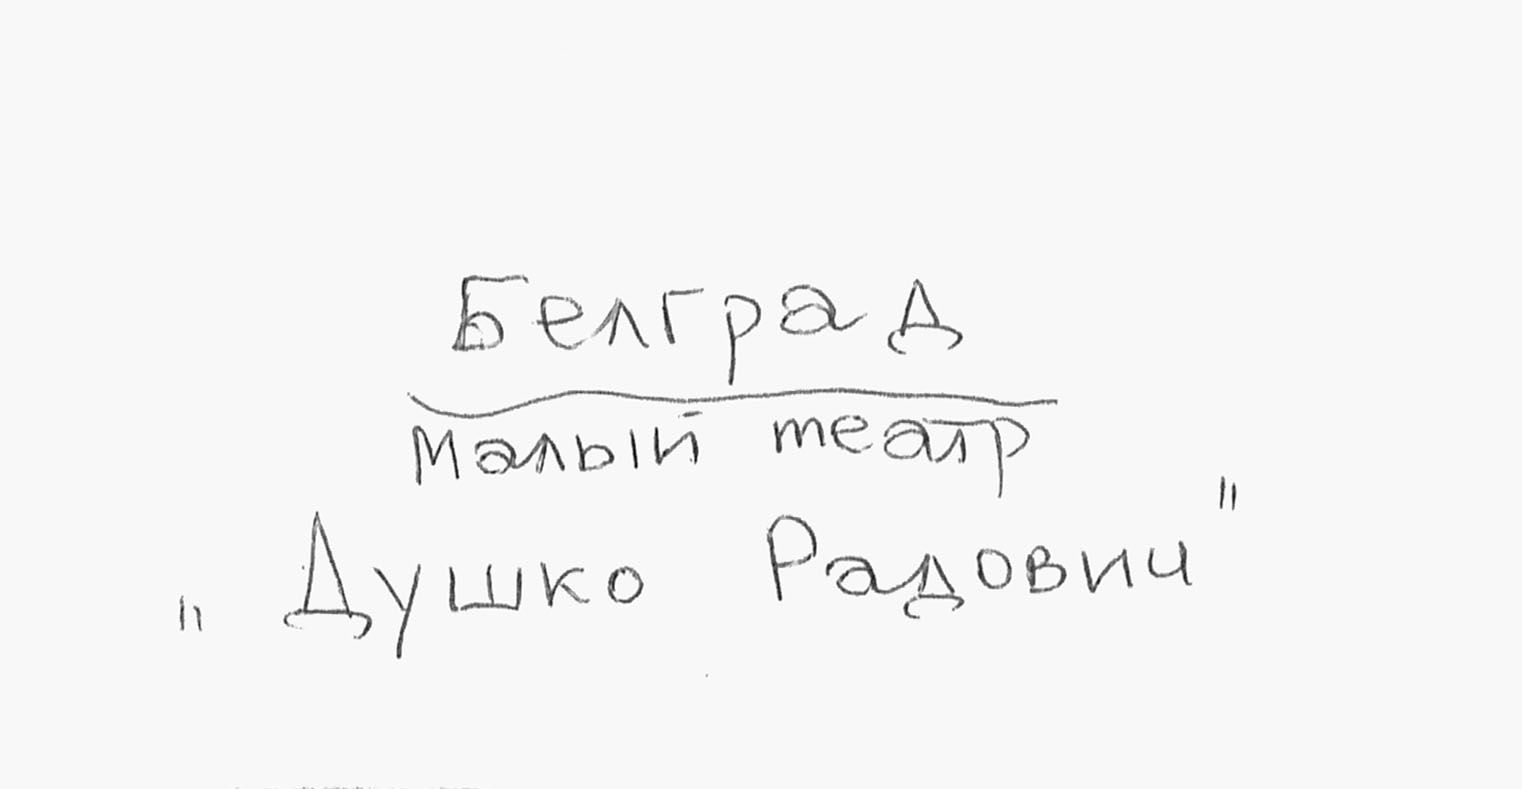 Белград
малый театр
"Душко Радович"